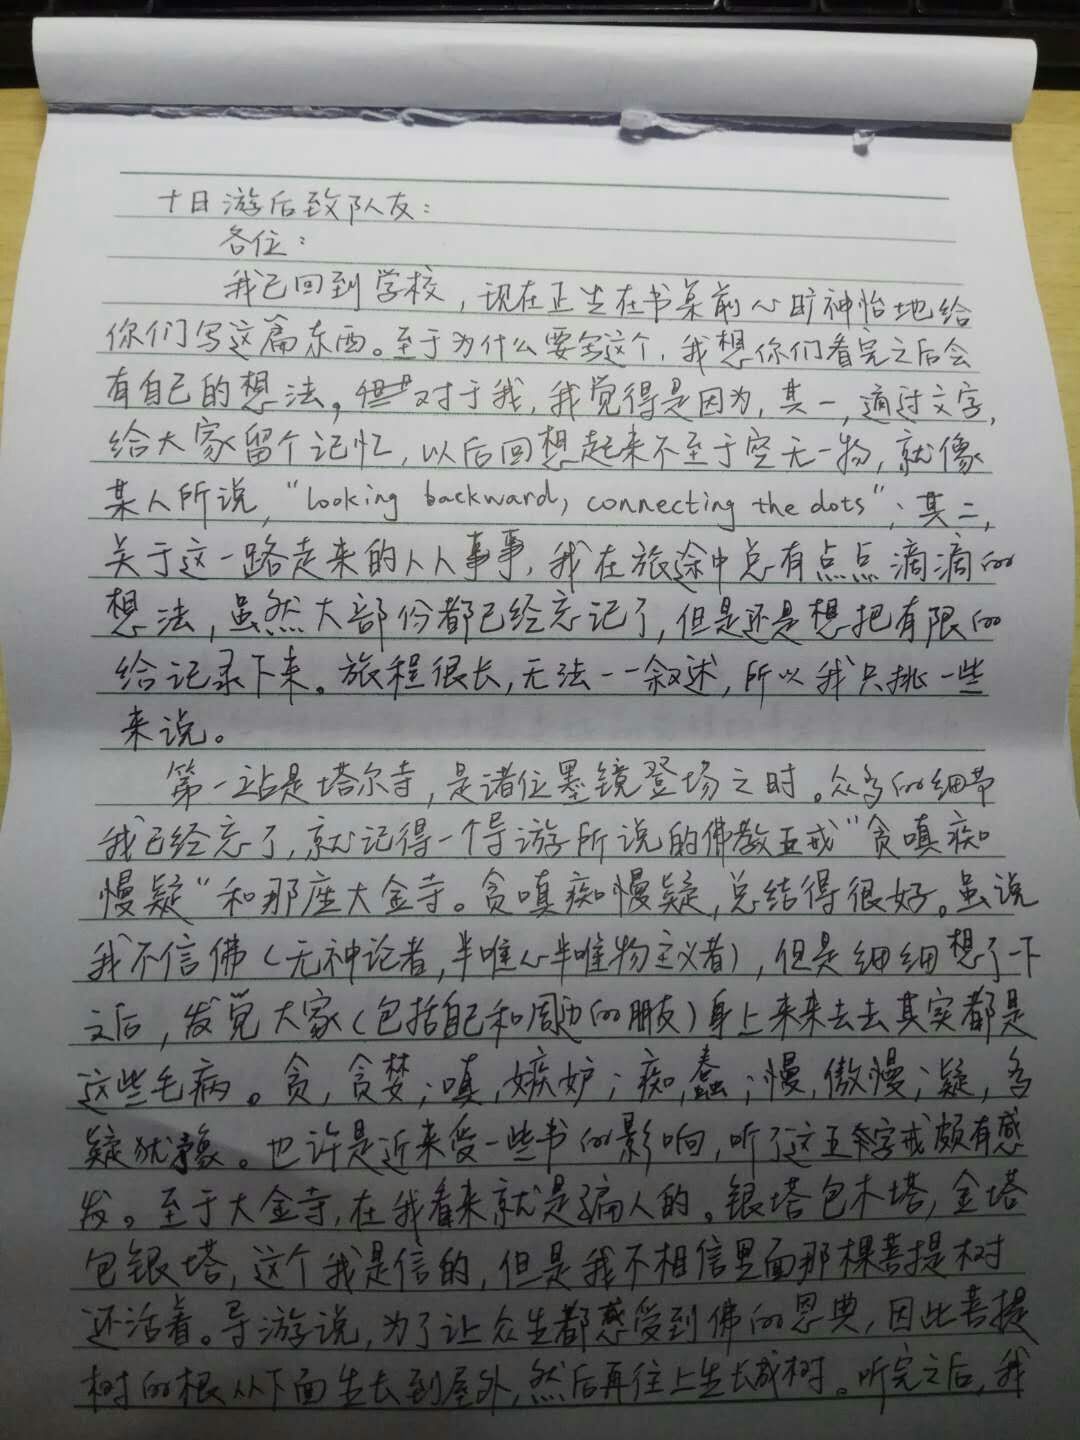 十日游后致队友：
各位：
我已回到学校，现在正坐在书桌前心旷神怡地给
你们写这篇东西。至于为什么要写这个，我想你们看完之后会
有自己的想法。但对于我，我觉得是因为，其一，通过文字，
给大家留个记忆，以后回想起来不至于空无一物，就像
某人所说，“looking backward, connecting the dots”；其二，
关于这一路走来的人人事事，我在旅途中总有点点滴滴的
想法，虽然大部份都已经忘记了，但是还是想把有限的
给记录下来。旅程很长，无法一一叙述，所以我只挑一些
来说。
第一站是塔尔寺，是诸位墨镜登场之时。众多的细节
我已经忘了，就记得一个导游所说的佛教五戒“贪嗔痴
慢疑”和那座大金寺。贪嗔痴慢疑，总结得很好。虽说
我不信佛（无神论者，半唯心半唯物主义者），但是细细想了一下
之后，发觉大家（包括自己和周边的朋友）身上来来去去其实都是
这些毛病。贪，贪婪；嗔，嫉妒；痴，蠢；慢，傲慢；疑，多
疑犹豫。也许是近来受一些书的影响，听了这五字戒颇有感
发。至于大金寺，在我看来就是骗人的。银塔包木塔，金塔
包银塔，这个我是信的，但是我不相信里面那棵菩提树
还活着。导游说，为了让众生都感受到佛的恩典，因此菩提
树的根从下面生长到屋外，然后再往上生长成树。听完之后，我